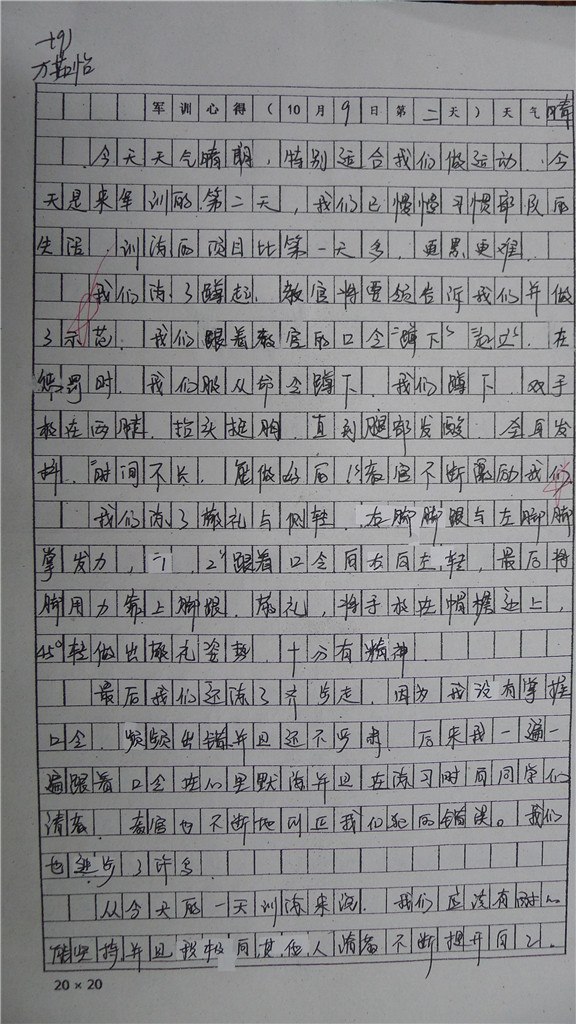 十9
方茹怡
军训心得(10月9日第二天)天气晴
今天天气晴朗,特别适合我们做运动.今
天是来军训的第二天,我们已慢慢习惯部队的
生活.训练的项目比第一天多,更累更难.
我们练了蹲起.教官将要领告诉我们并做
了示范.我们跟着教官的口令"蹲下""起立".在
惩罚时.我们服从命令蹲下.我们蹲下.双手
放在两膝.抬头挺胸.直到腿部发酸.全身发
抖."时间不长.座做好后"教官不断激励我们.
我们练了敬礼与侧轻.右脚脚跟与左脚脚
掌发力,"1 2"跟着口令向右向左轻,最后将
脚用力靠上脚跟.敬礼,将手放在帽檐边上,
45°轻做出敬礼姿势.十分有精神.
最后我们还练了齐步走.因为我没有掌握
口令.频频出错并且还不罗肃.后来我一遍一
遍跟着口令在心里默练并且在练习时向同学们
请教.教官也不断地纠正我们犯的错误。我们
也进步了许多.
从今天的一天训练来说.我们应该有耐心
能坚持并且积极向其他人请备不断提升自己。
20×20